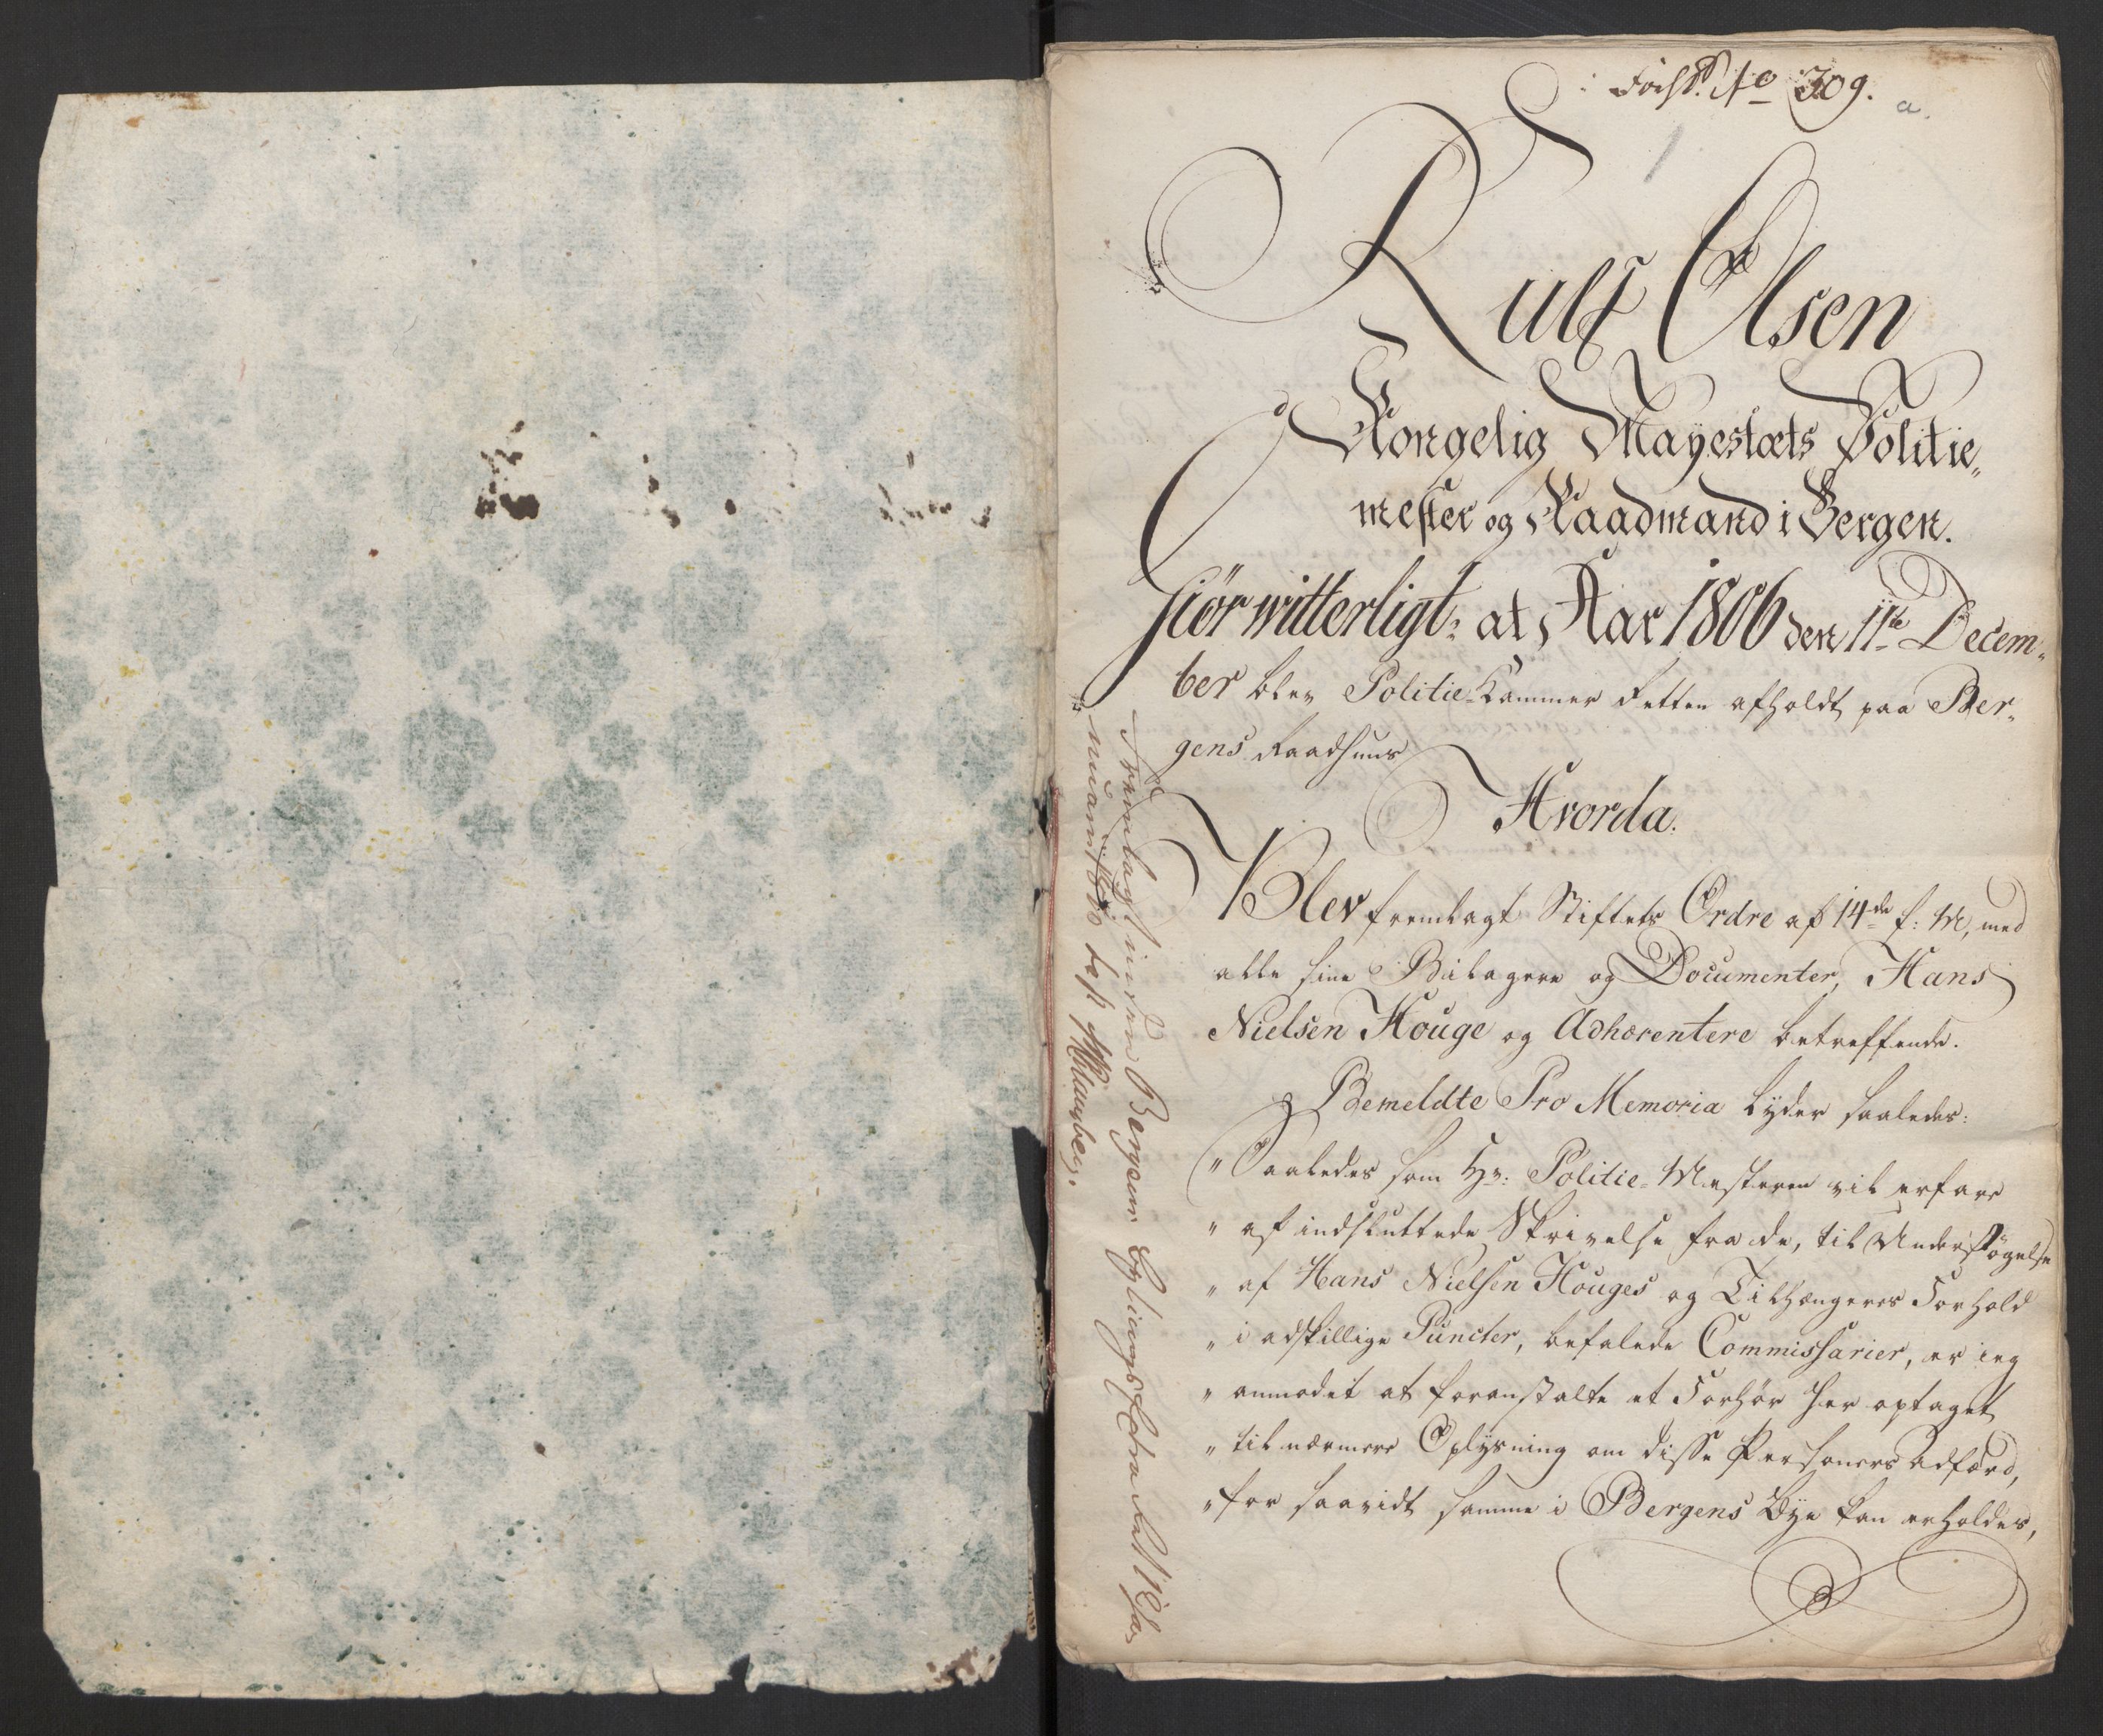 No 309.
a.
1
Rulf Olsen
Kongelig Mayestæts Politie„
mester og Raadmand i Bergen.
Giör witterligt: at Aar 1806 den 11te Decem„
ber blev Politie-Kammer Retten afholdt paa Ber„
gens Raadhuus
Hvorda.
Blev fremlagt Stiftets Ordre af 14de f: M, med
alle sine Bilagere og Documenter, Hans
Nielsen Houge og Adhærentere betreffende.
Bemeldte Pro Memoria lyder saaledes:
„Saaledes som Hr: Politie-Mesteren vil erfare
„ af indsluttede Skrivelse fra de, til Undersøgelse
„ af Hans Nielsen Houges og Tilhængeres Forhold
„ i adskillige Puncter, befalede Commissarier, er ieg
„ anmodet at foranstalte et Forhør her optaget
„ til nærmere Oplysning om disse Personers Adfærd,
„ for saavidt samme i Bergens Bye kan erholdes,
Fremlagt inden Bergens